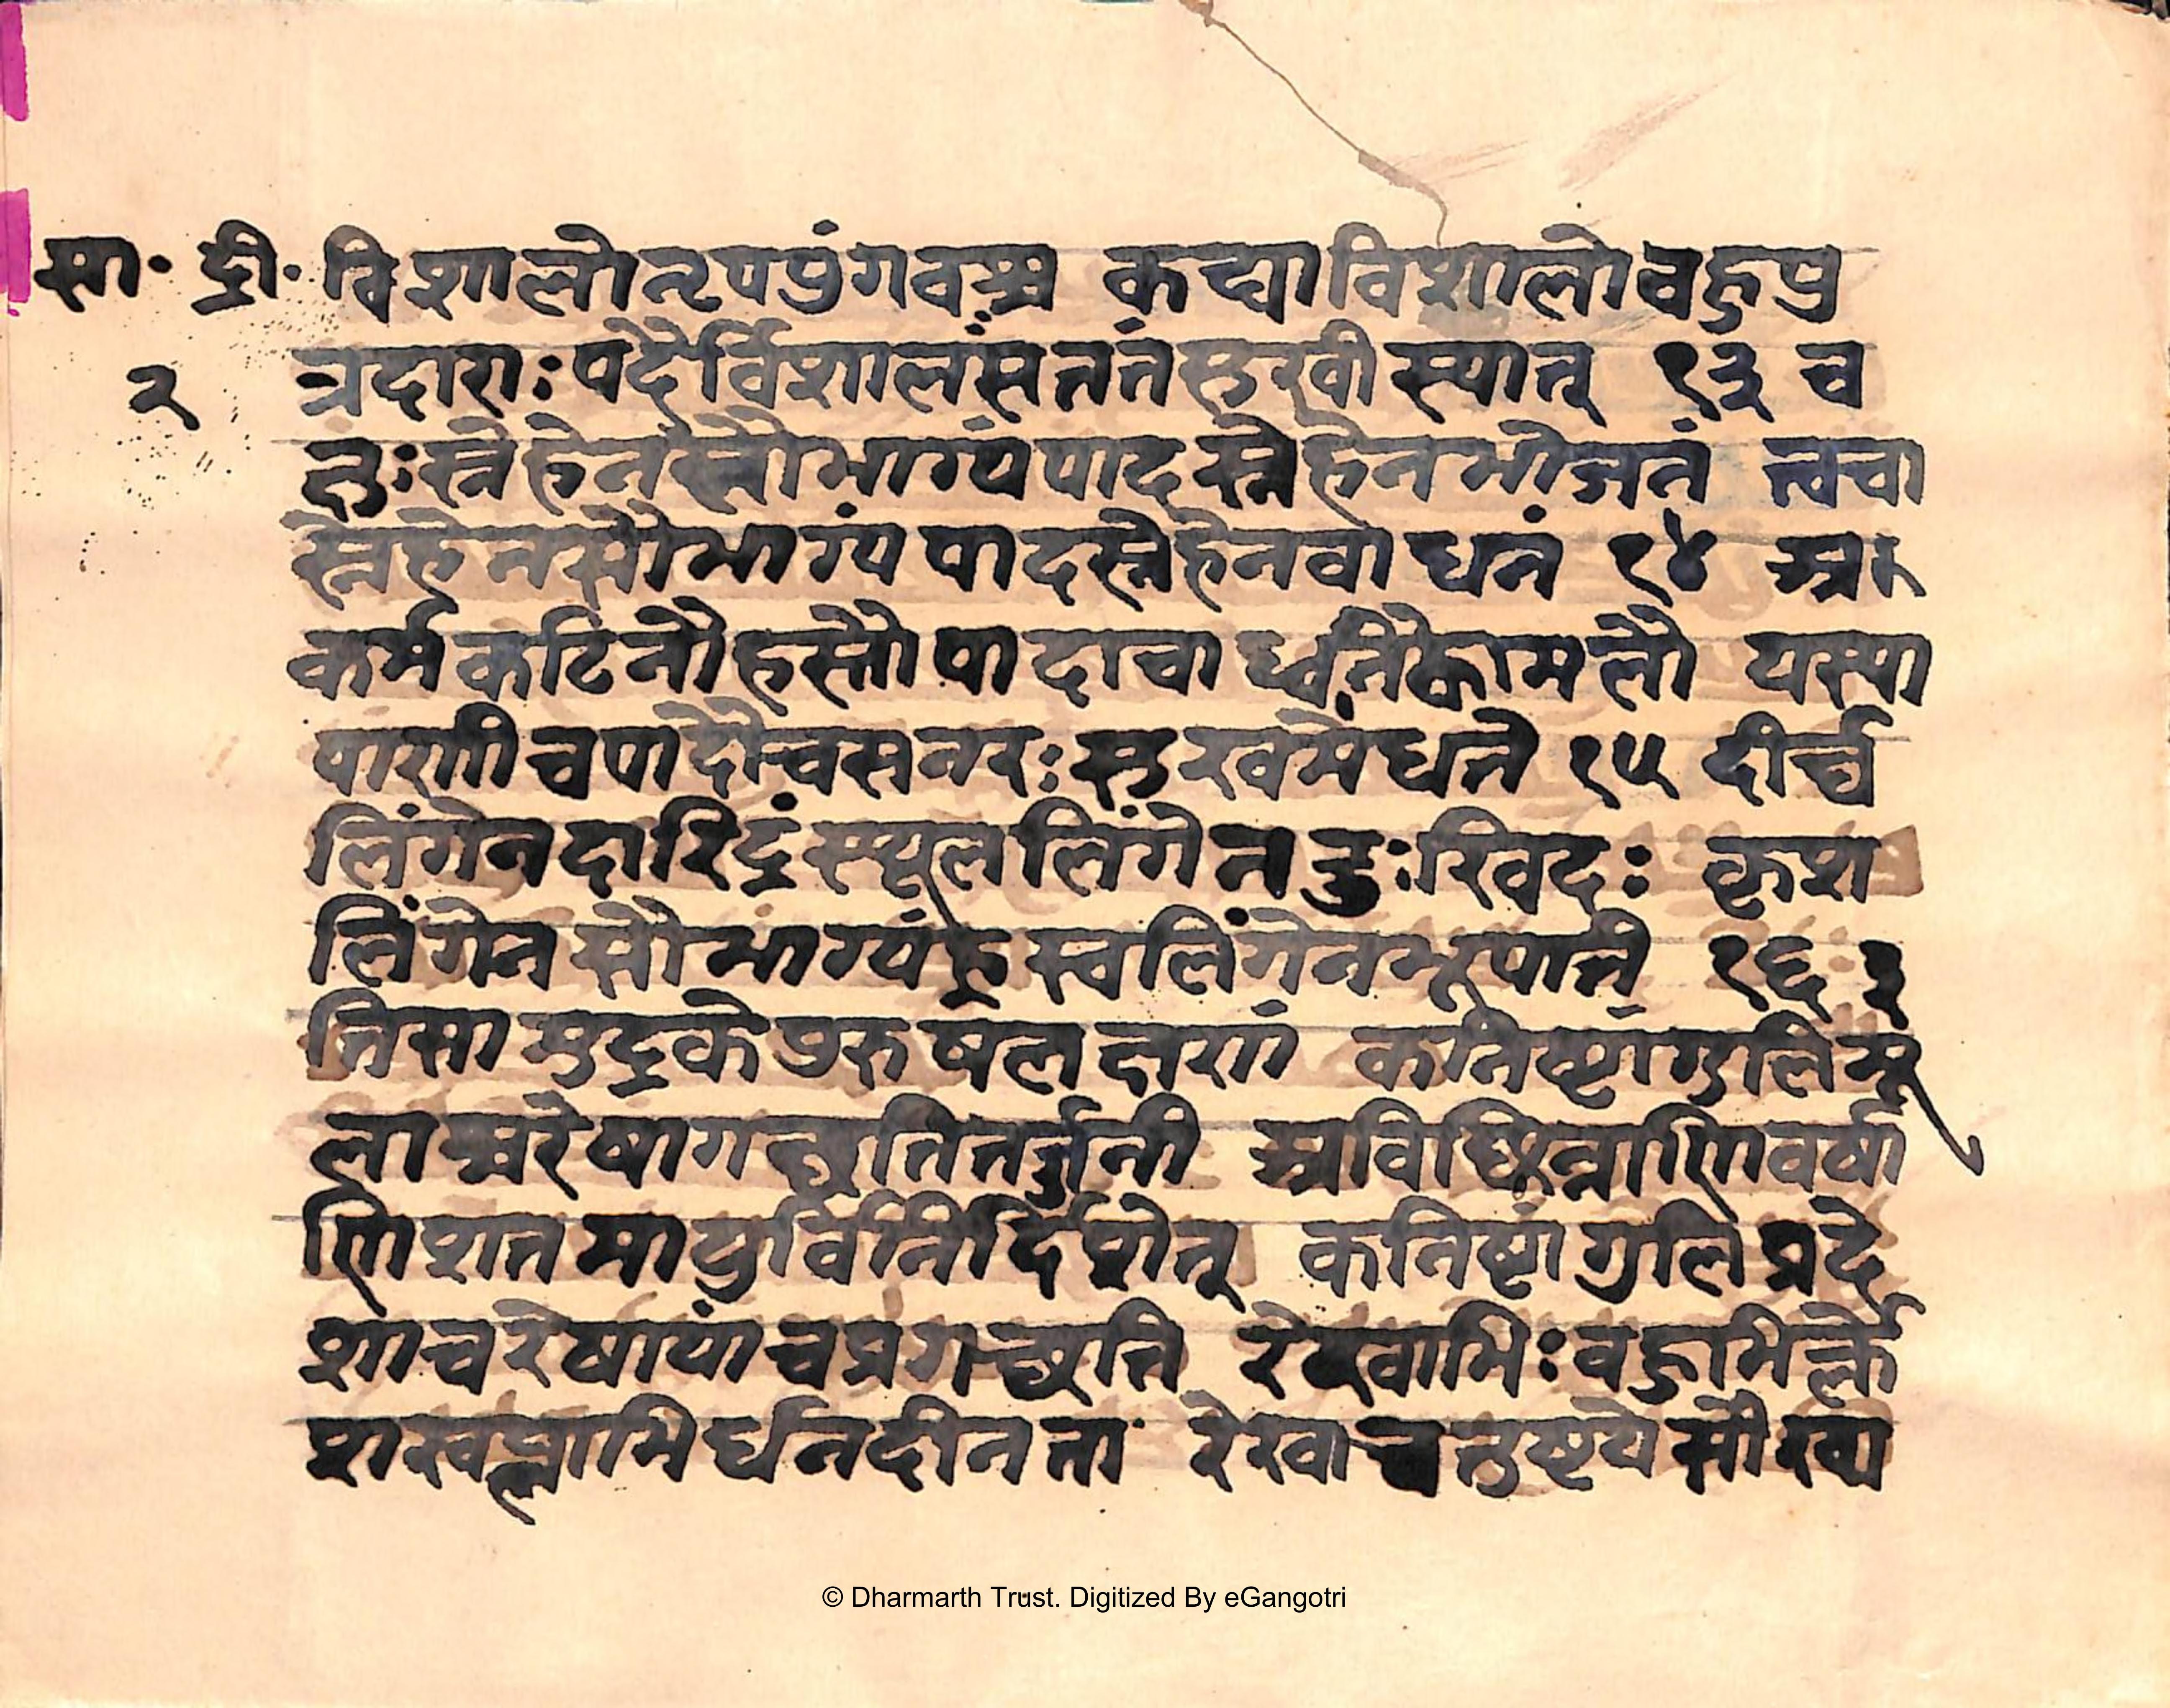 सा॰ द्री॰ विशालोनृपपुंगवश्च कट्याविशालोबहुपु
२ त्रदाराः पदैर्विशालंसततंसुखीस्यात् १३ च
क्षुःस्नेहेनसौभाग्यंपादस्नेहेनभोजतं त्वचा
स्नेहेनसौभाग्यं पादस्नेहेनवाधनं १४ अ
कर्मकठिनौहस्तौपादावाध्वनिकोमलौ यस्या
पाणीचपादौचसनरःसुखमेधते १५ दीर्घ
लिंगेनदारिद्रंस्थूललिंगेनदुःखिदः कृश
लिंगेनसौभाग्यंह्रस्वलिंगेनभूपति १६ इ
तिसामुद्रकेपुरुषलक्षणं कनिष्टांगुलिमू
लाश्चरेषागच्छतितर्ज्जनी अविछिन्नाणिवर्षा
णिशतमायुर्विनिर्दिशेत् कनिष्टांगुलिप्रदे
शाचरेषायांचप्रगच्छति रेखाभिःबहुभिर्क्ले
शस्वल्पाभिर्धनदीनता रेखाचतुष्टयेसौख्या
© Dharmarth Trust. Digitized By eGangotri